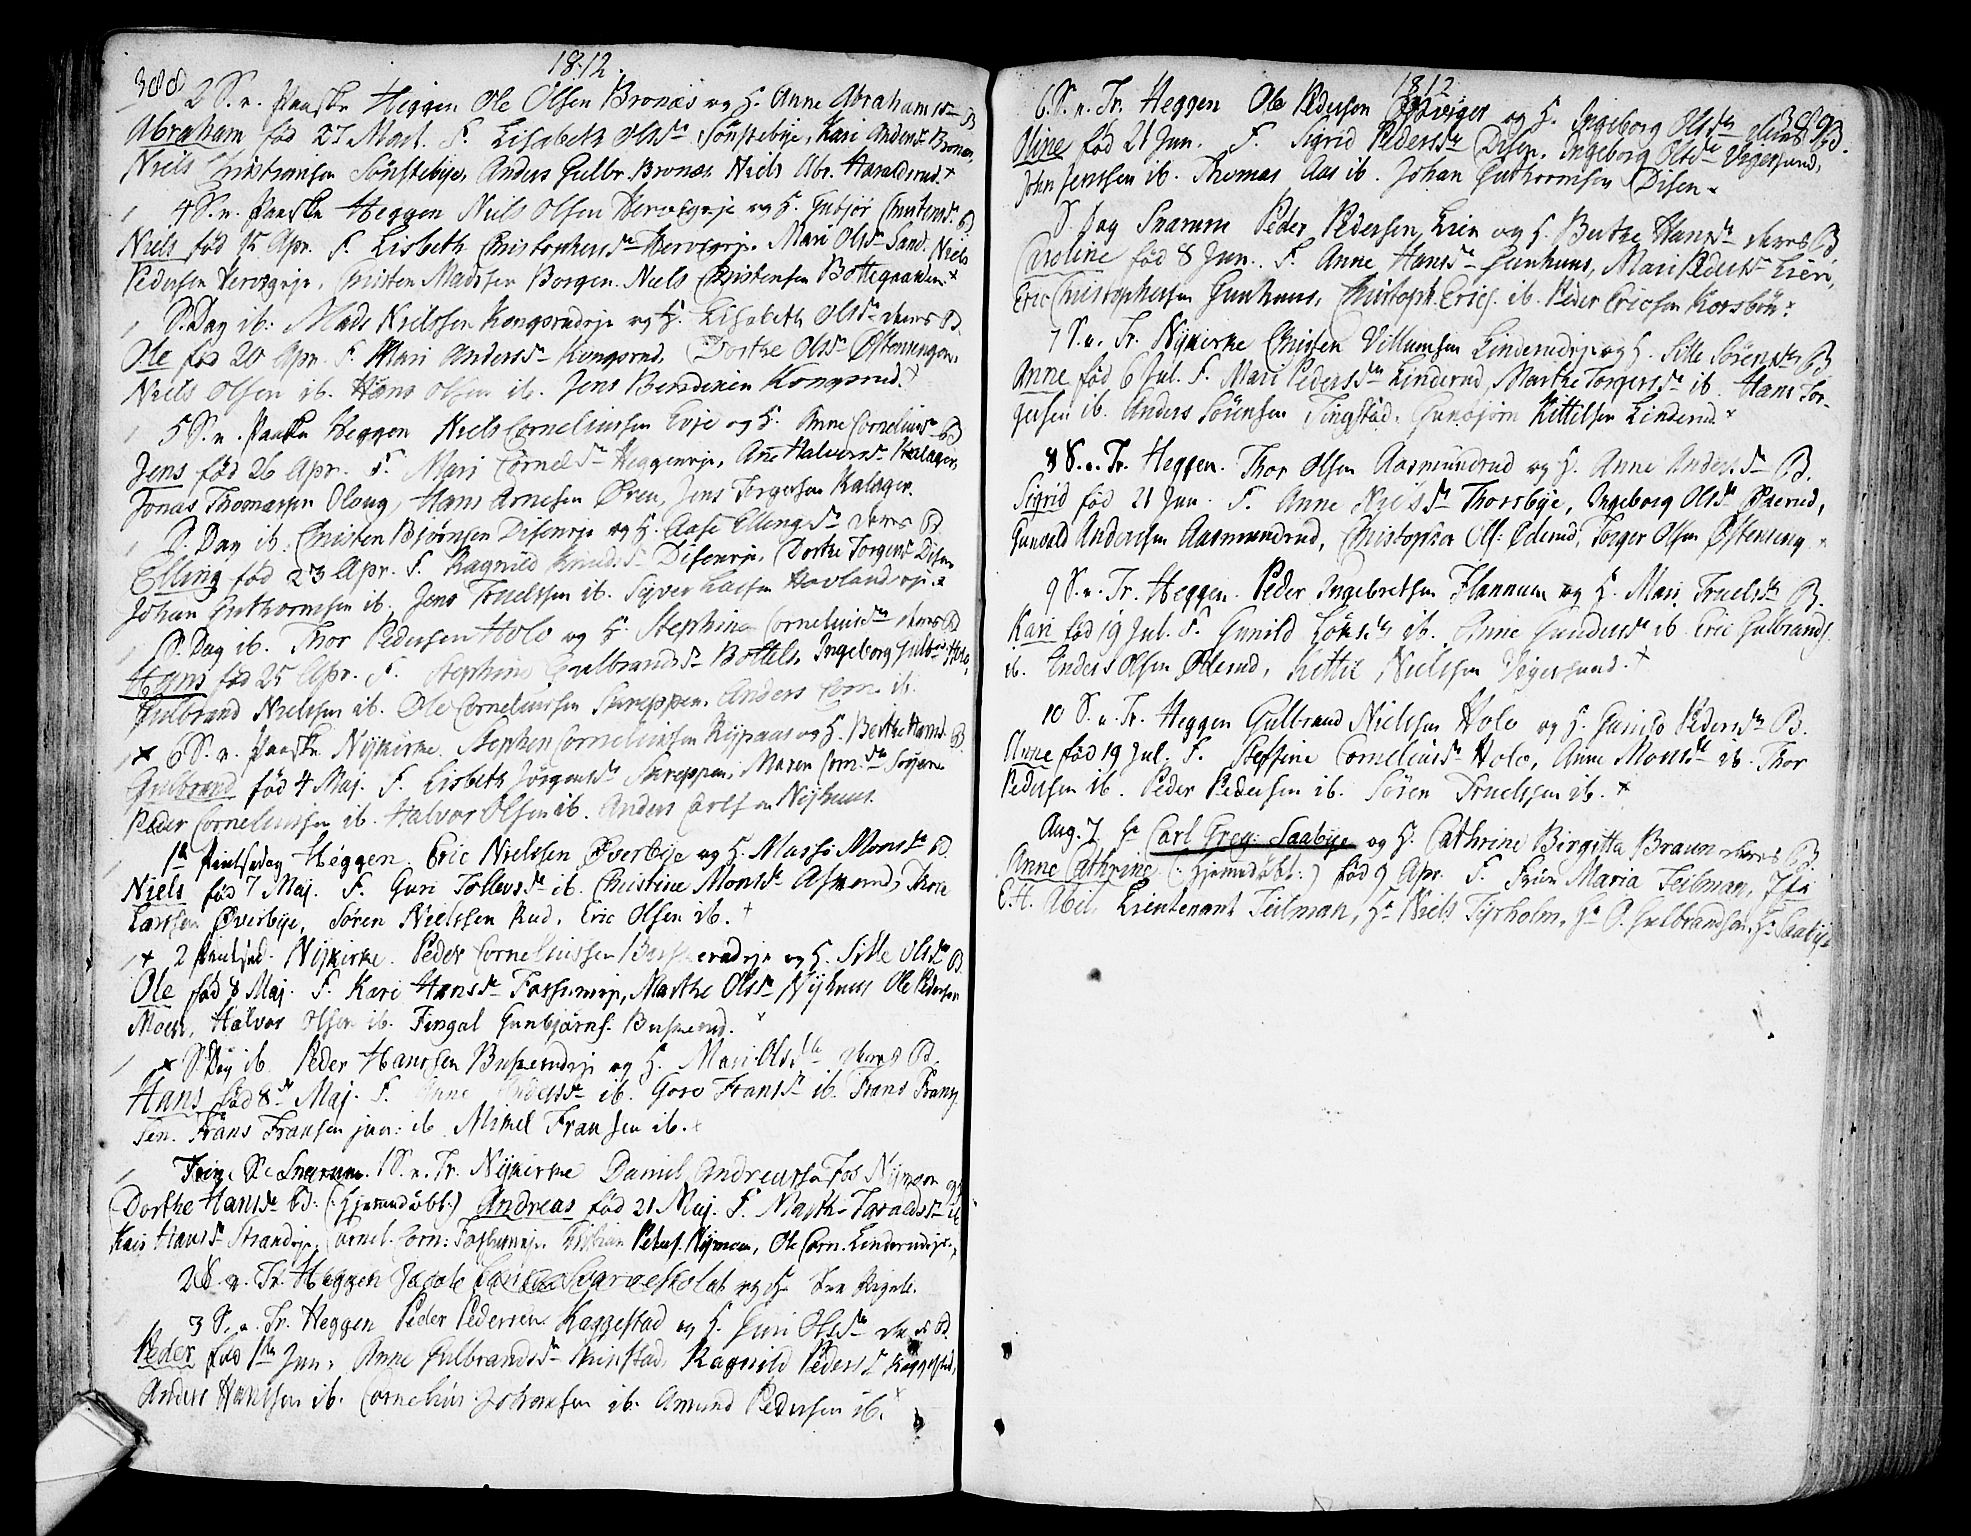 388
1812.
2 S. e. Paaske Heggen Ole Olsen Bronæs og H. Anne Abraham B
Abraham fød 27 Mart. F. Lisabeth Olsdr Sønstebye, Kari Andersdr Bronæs,
Niels Christiansen Sønstebye, Anders Gulbr. Bronæs Niels Abr. Haraldsrud. +
4 S. e. Paaske Heggen Niels Olsen Hervegeje og H. Gubjør Christensdr B.
Niels fød 15 Apr. F. Lisbeth Christophersdr Mari Olsdr Sand. Niels
Pedersen Christen Madssen Borgen. Niels Christensen Bottegaarden +
S. Dag ib: Mads Nielssen Kongsrudeje og H. Lisabeth Olsdr deres B.
Ole fød 20 Apr. F. Mari Andersdr Kongsrud. Dorthe Olsdr Østensengen.
Niels Olsen ib. Hans Olsen ib. Jens Berdinien Kongsrud. +
5 S. e. Paaske Heggen Niels Corneliussen Evje og H. Anne Corneliusdr B
Jens fød 26 Apr. F. Mari Cornelsdr Heggeneje, Ane Halvorsdr Kalager,
Jonas Thomassen Oloug, Hans Arnesen Øren, Jens Torgersen Kalager.
S. Dag ib: Christen Bjørnsen Diseneje og H. Aase Ellingsdr deres B.
Elling fød 23 Apr. F. Ragnild Knudsdr Diseneje, Dorthe Torgersdr Disen
Johan Guthormsen ib. Jens Truelssen ib. Syver Larsen Hovlandseje +
S. Dag ib. Thor Pedersen Holo og H. Stephine Corneliusdr deres B
Hans fød 25 Apr. F. Stephine Gulbrandsdr Bottels, Ingeborg Gulbrdr Holo,
Gulbrand Nielssen ib. Ole Corneliussen Skreppen. Anders Corn. ib.
+ 6 S. e. Paaske Nykirke. Stephen Corneliussen Rypaas og H. Berthe Hansdr B.
Gulbrand fød 4 Maj. F. Lisbeth Jørgensdr Skreppen. Maren Corn.dr
Peder Corneliussen ib. Halvor Olsen ib. Anders Carlsen Nyhuus.
1ste Pintsedag Heggen. Eric Nielssen Øverbye og H. Massi Monsdr B.
Niels fød 7 Maj. F. Guri Tollevsdr ib. Christine Monsdr Asmerud, Thore
Larssen Øverbye, Søren Nielssen Rud, Eric Olsen ib. +
+ 2 Pintsed. Nykirke. Peder Corneliussen Buskerudeje og H. Sille Olsdr B.
Ole fød 8 Maj. F. Kari Hansdr Fossumeje, Marthe Olsdr Nyhuus Ole Pedersen
Moen, Halvor Olsen ib. Fingal Gunbjørns. Buskerud.
+ S. Dag ib. Peder Hanssen Buskerudeje og H. Mari Olsdr deres B.
Hans fød 8de Maj. F. Anne Andersdr ib. Goro Fransdr ib. Frans Frans
sen. Frans Fransen jun: ib Mikel Fransen ib.
Trin. S. Snarum. 1 S. e. Tr. Nykirke Daniel Andreassen Fos Nymoen og
Dorthe Hansdr B: (: Hjemedøbt:) Andreas fød 21 Maj. F. Marthe Taraldsdr ib
Kari Hansdr Strandeje, Cornel. Corn: Fossumeje. Christian Peders. Nymoen, Ole Corn. Linderudeje.
2 S. e. Tr. Heggen Jacob og H.
3 S. e. Tr. Heggen Peder Pedersen Kaggestad og H. Guri Olsdr deres B.
Peder fød 1ste Jun. Anne Gulbrandsdr Ragnild Pedersdr Kaggestad,
Anders Hanssen ib. Cornelius Johansen ib. Amund Pedersen ib. +
1812.
389.
6. S. e. Tr. Heggen Ole Pedersen og H. Ingeborg Olsdr deres B.
Oline fød 21 Jun. F. Sigrid Pedersdr Disen. Ingeborg Olsdr Vigersund,
John Jenssen ib. Thomas Aas ib. Johan Guthormsen Disen.
S. Dag Snarum Peder Pedersen Lien og H. Berthe Hansdr deres B
Caroline fød 8 Jun. F. Anne Hansdr Gunhuus, Mari Pedersdr Lien,
Eric Christophersen Gunhuus, Christoph. Erics. ib. Peder Ericsen Korsbøn
7 S. e. Tr. Nykirke Christen Villumsen Linderudeje og H. Sille Sørensdr B
Anne fød 6 Jul. F. Mari Pedersdr Linderud, Marthe Torgersdr ib. Hans Tor-
gersen ib. Anders Sørensen Tingstad, Gunbjørn Kittelsen Linderud +
8 S. e. Tr. Heggen. Thor Olsen Aasmundrud og H. Anne Andersdr B.
Sigrid fød 21 Jun. F. Anne Nielsdr Thorsbye, Ingeborg Olsdr Øderud,
Gunvald Andersen Aasmundrud, Christopher Ols: Øderud, Torger Olsen Østenseng
9 S. e. Tr. Heggen. Peder Ingebretsen Flannum og H. Mari Truelsdr B.
Kari fød 19 Jul. F. Gunild ib. Anne Gundersdr ib. Eric Gulbrands.
ib. Anders Olsen Øderud, Kittil Nielssen Vigersund. +
10 S. e. Tr. Heggen Gulbrand Nielssen Holo og H. Gunild Pedersdr B.
Anne fød 19 Jul. F. Steffine Corneliusdr Holo, Anne Monsdr ib. Thor
Pedersen ib. Peder Pedersen ib. Søren Truelssen ib. +
Aug. 7. Hr Carl Greg: Saabye og H. Cathrine Birgitta Braun deres B.
Anne Cathrine (: Hjemedøbt:) fød 9 Apr. F. Frue Maria Teilman, Jfr
C. H. Abel, Lieutenant Teilman, Hr Niels Tyrholm, Hr O. Gulbrandsen, Hr Saabye